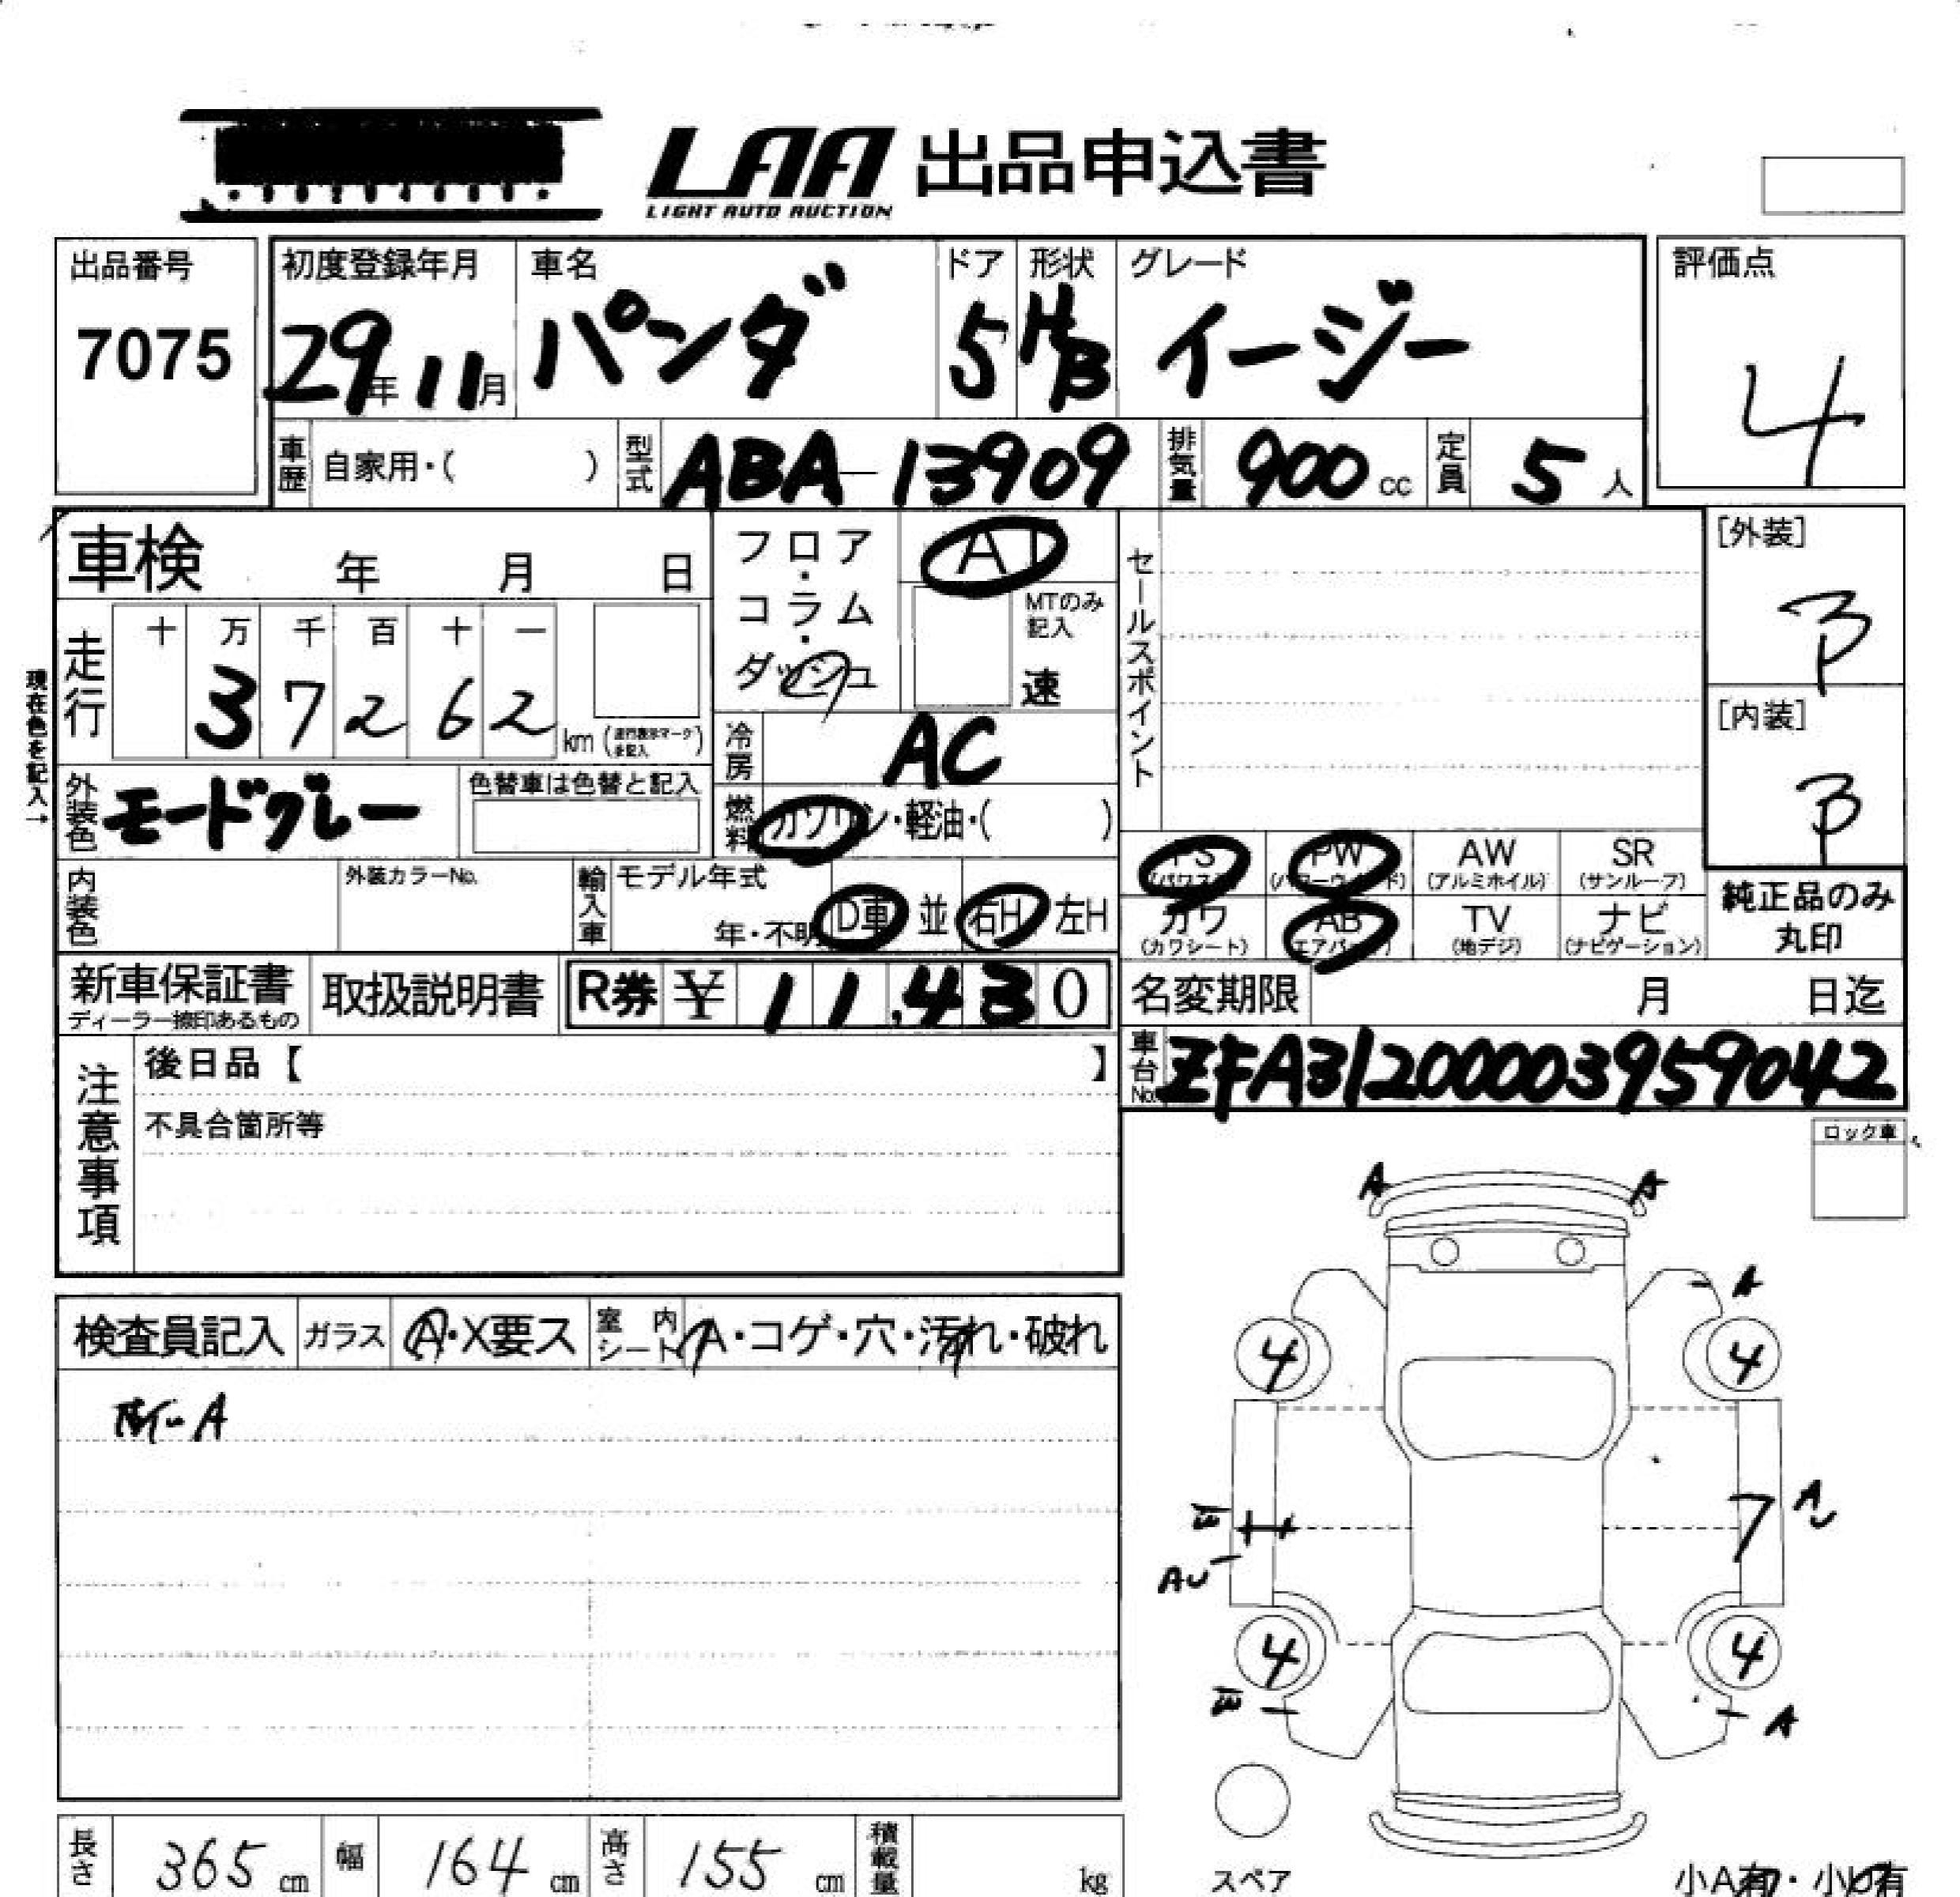 LAA 出品申込書
LIGHT AUTO AUCTION
出品番号
7075
初度登録年月
29年11月
車名
パンダ
ドア
5
形状
H/B
グレード
イージー
評価点
4
車歴 自家用・( )
型式 ABA-13909
排気量 900cc
定員 5人
車検 年 月 日
フロア・コラム・ダッシュ
AT
MTのみ記入
速
セールスポイント
[外装]
B
[内装]
B
現在色を記入→
走行
十 万 千 百 十 一
3 7 2 6 2 km
冷房 AC
外装色 モードグレー
色替車は色替と記入
燃料 ガソリン・軽油・( )
内装色
外装カラーNo.
輸入車 モデル年式
年・不明 D車 並 右H 左H
PS(パワステ) PW(パワーウインド) AW(アルミホイル) SR(サンルーフ)
カワ(カワシート) AB(エアバッグ) TV(地デジ) ナビ(ナビゲーション)
純正品のみ
丸印
新車保証書
ディーラー捺印あるもの
取扱説明書
R券 ¥ 11,430
名変期限 月 日迄
車台No. ZFA31200003959042
注意事項
後日品【 】
不具合箇所等
ロック車
検査員記入 ガラス A・X要ス 室内シート A・コゲ・穴・汚れ・破れ
A
A A
A
4 4
A
AU
4 4
A
スペア
小A有・小U有
長さ 365cm 幅 164cm 高さ 155cm 積載量 kg